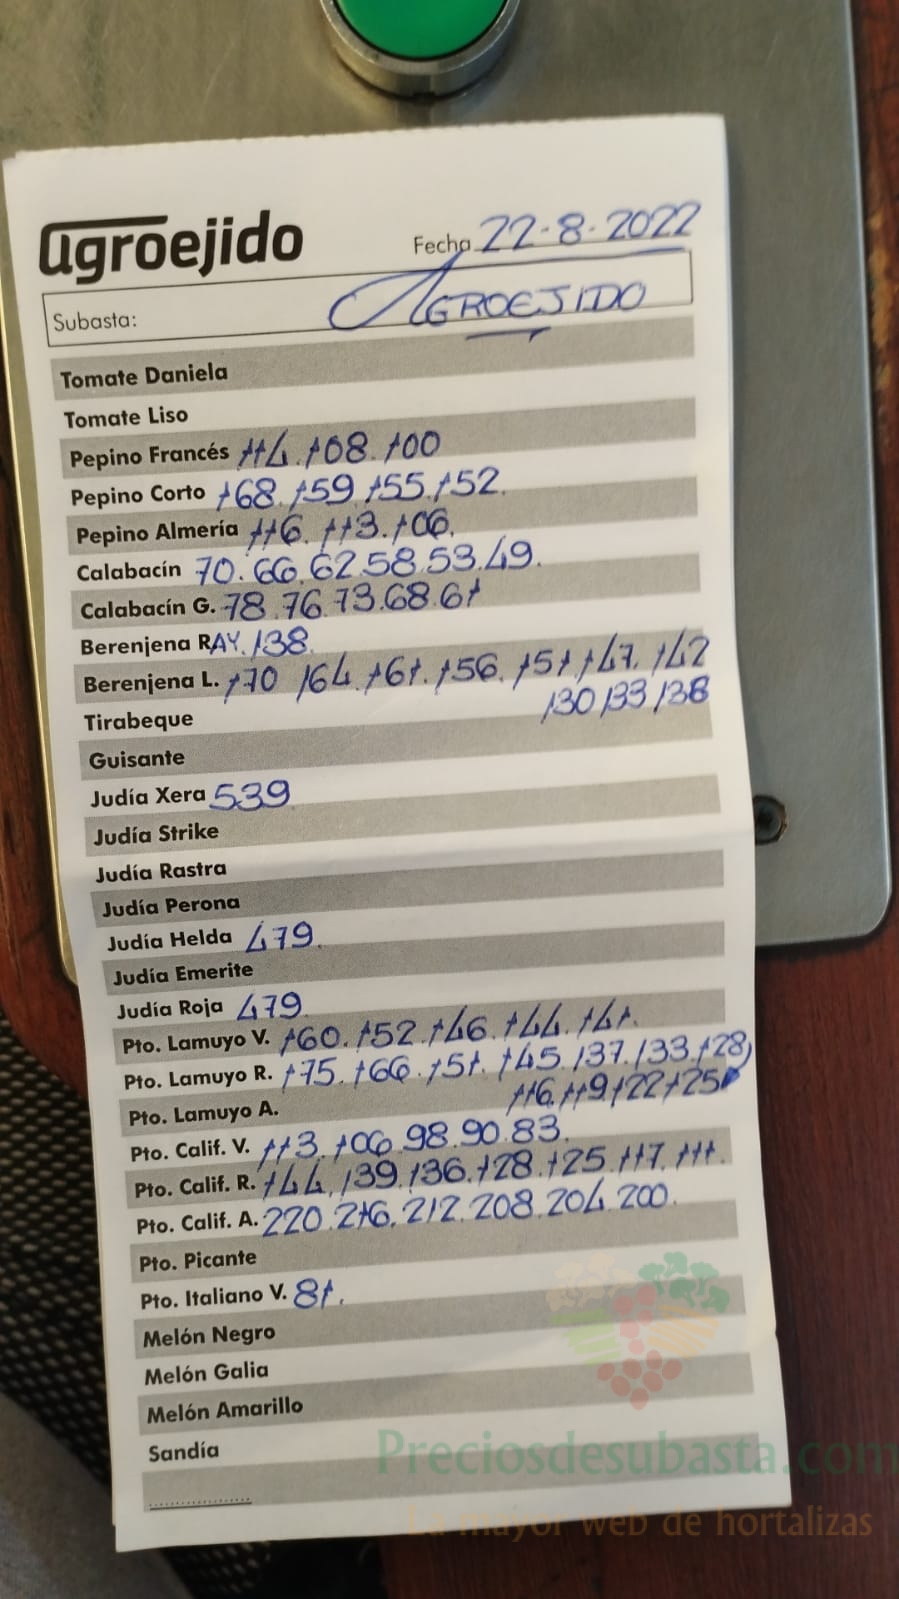 agroejido
Fecha 22-8-2022
Subasta: AGROEJIDO
Tomate Daniela
Tomate Liso
Pepino Francés 114. 108. 100
Pepino Corto 168. 159. 155. 152.
Pepino Almería 116. 113. 106.
Calabacín 70. 66. 62. 58. 53. 49.
Calabacín G. 78. 76. 73. 68. 61
Berenjena RAY. 138.
Berenjena L. 170 164. 161. 156. 151 147. 142
130 133 138
Tirabeque
Guisante
Judía Xera 539
Judía Strike
Judía Rastra
Judía Perona
Judía Helda 479.
Judía Emerite
Judía Roja 479
Pto. Lamuyo V. 160. 152. 146. 144. 141.
Pto. Lamuyo R. 175. 166. 151. 145. 137. 133. 128
116. 119. 122 125
Pto. Lamuyo A.
Pto. Calif. V. 113. 106. 98. 90. 83.
Pto. Calif. R. 144. 139. 136. 128. 125. 117. 111.
Pto. Calif. A. 220. 216. 212. 208. 204. 200.
Pto. Picante
Pto. Italiano V. 81.
Melón Negro
Melón Galia
Melón Amarillo
Sandía
Preciosdesubasta.com
La mayor web de hortalizas